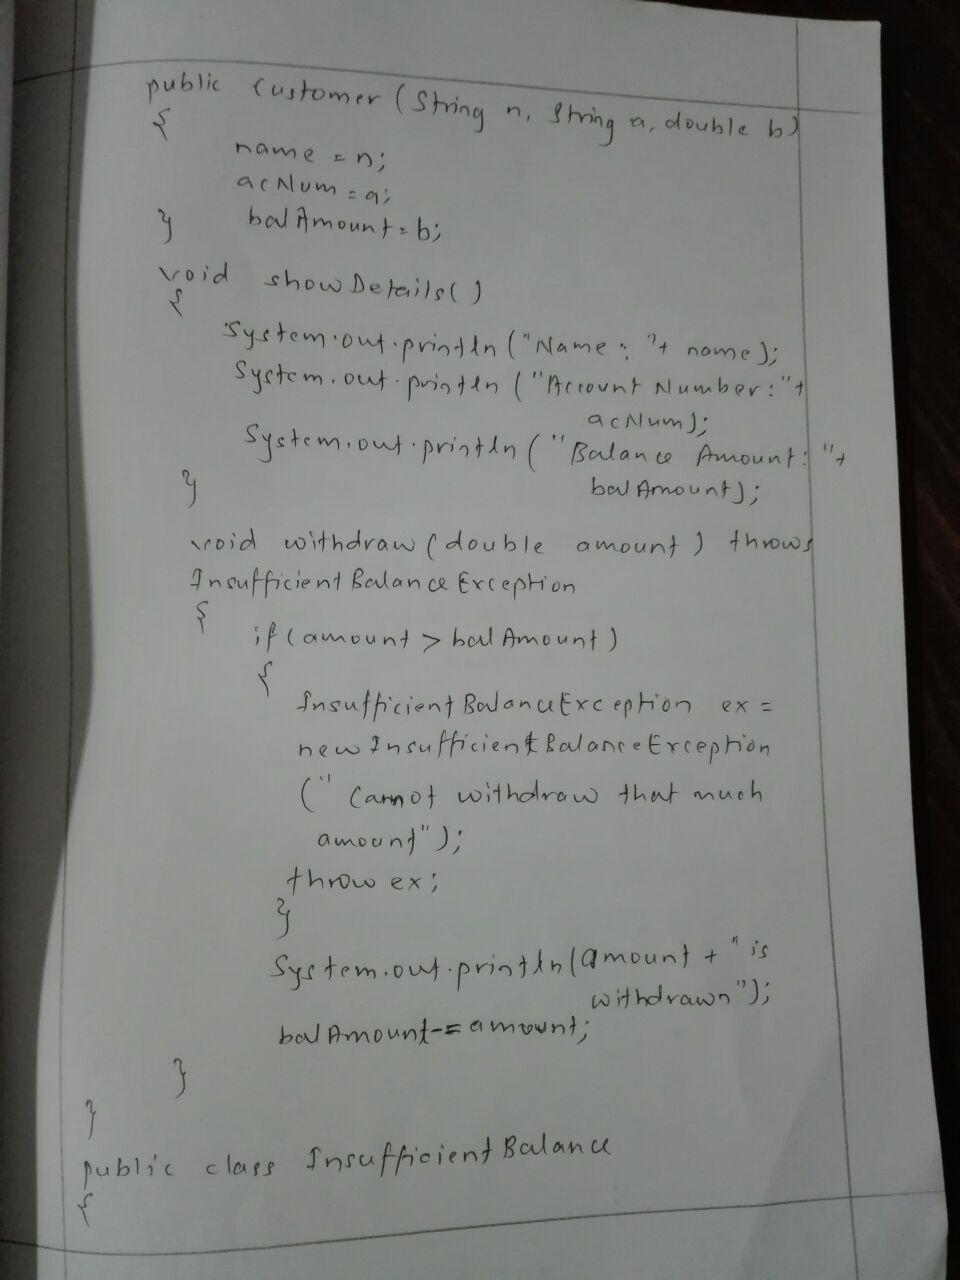 public Customer (String n, String a, double b)
{
name = n;
acNum = a;
balAmount = b;
}
void showDetails()
{
System.out.println ("Name : "+ name);
System.out.println ("Account Number: "+
acNum);
System.out.println ("Balance Amount: "+
balAmount);
}
void withdraw (double amount) throws
InsufficientBalanceException
{
if (amount > balAmount)
{
InsufficientBalanceException ex =
new InsufficientBalanceException
(" Cannot withdraw that much
amount");
throw ex;
}
System.out.println(amount + " is
withdrawn");
balAmount-= amount;
}
}
public class InsufficientBalance
{